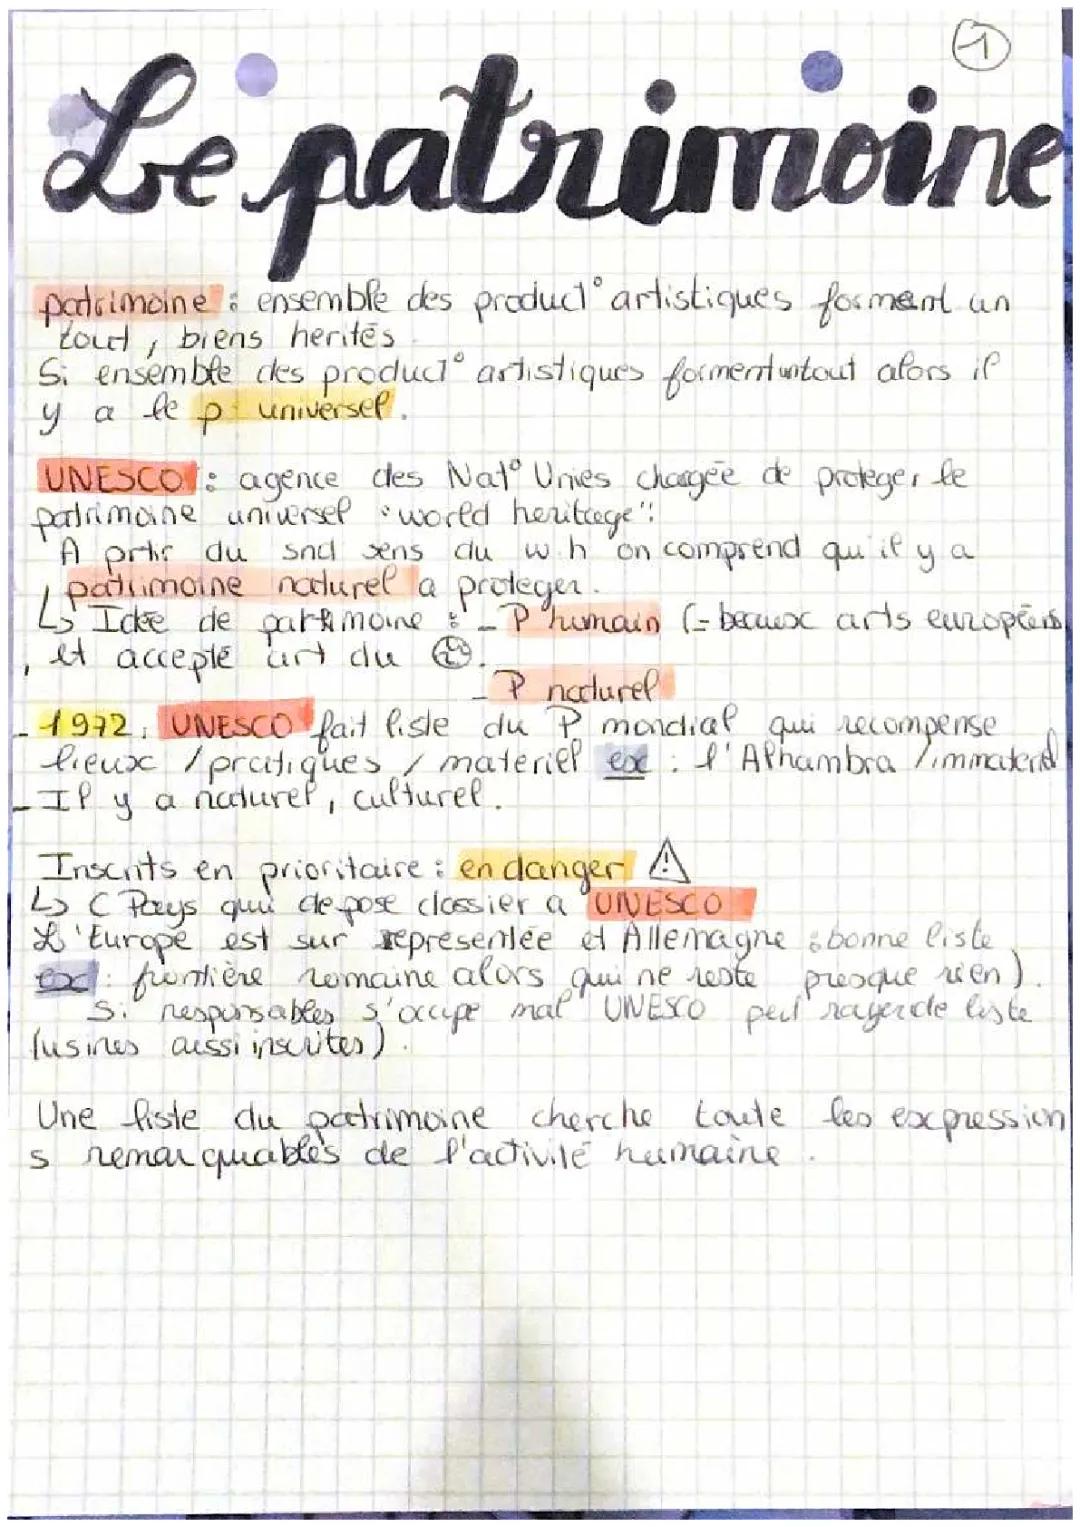 1
Le patrimoine
patrimoine : ensemble des product° artistiques forment un
tout, biens herités.
Si ensemble des product° artistiques forment un tout alors il
y a le p. universel.
UNESCO : agence des Nat° Unies chargée de proteger le
patrimoine universel "world heritage":
A prtir du snd sens du w.h on comprend qu'il y a
patrimoine naturel a proteger.
↳ Idée de patrimoine : - P humain (= beaux arts européens,
, et accepté art du
- P naturel
- 1972 : UNESCO fait liste du P mondial qui recompense
lieux / pratiques / materiel ex : l'Alhambra / immateriel
- Il y a naturel, culturel.
Inscrits en prioritaire : en danger ⚠
↳ ( Pays qui depose dossier a UNESCO
L'Europe est sur representée et Allemagne : bonne liste
ex : frontière romaine alors qui ne reste presque rien).
Si responsables s'occupe mal UNESCO peut rayer de liste
(usines aussi inscrites).
Une liste du patrimoine cherche toute les expression
s remarquables de l'activité humaine.